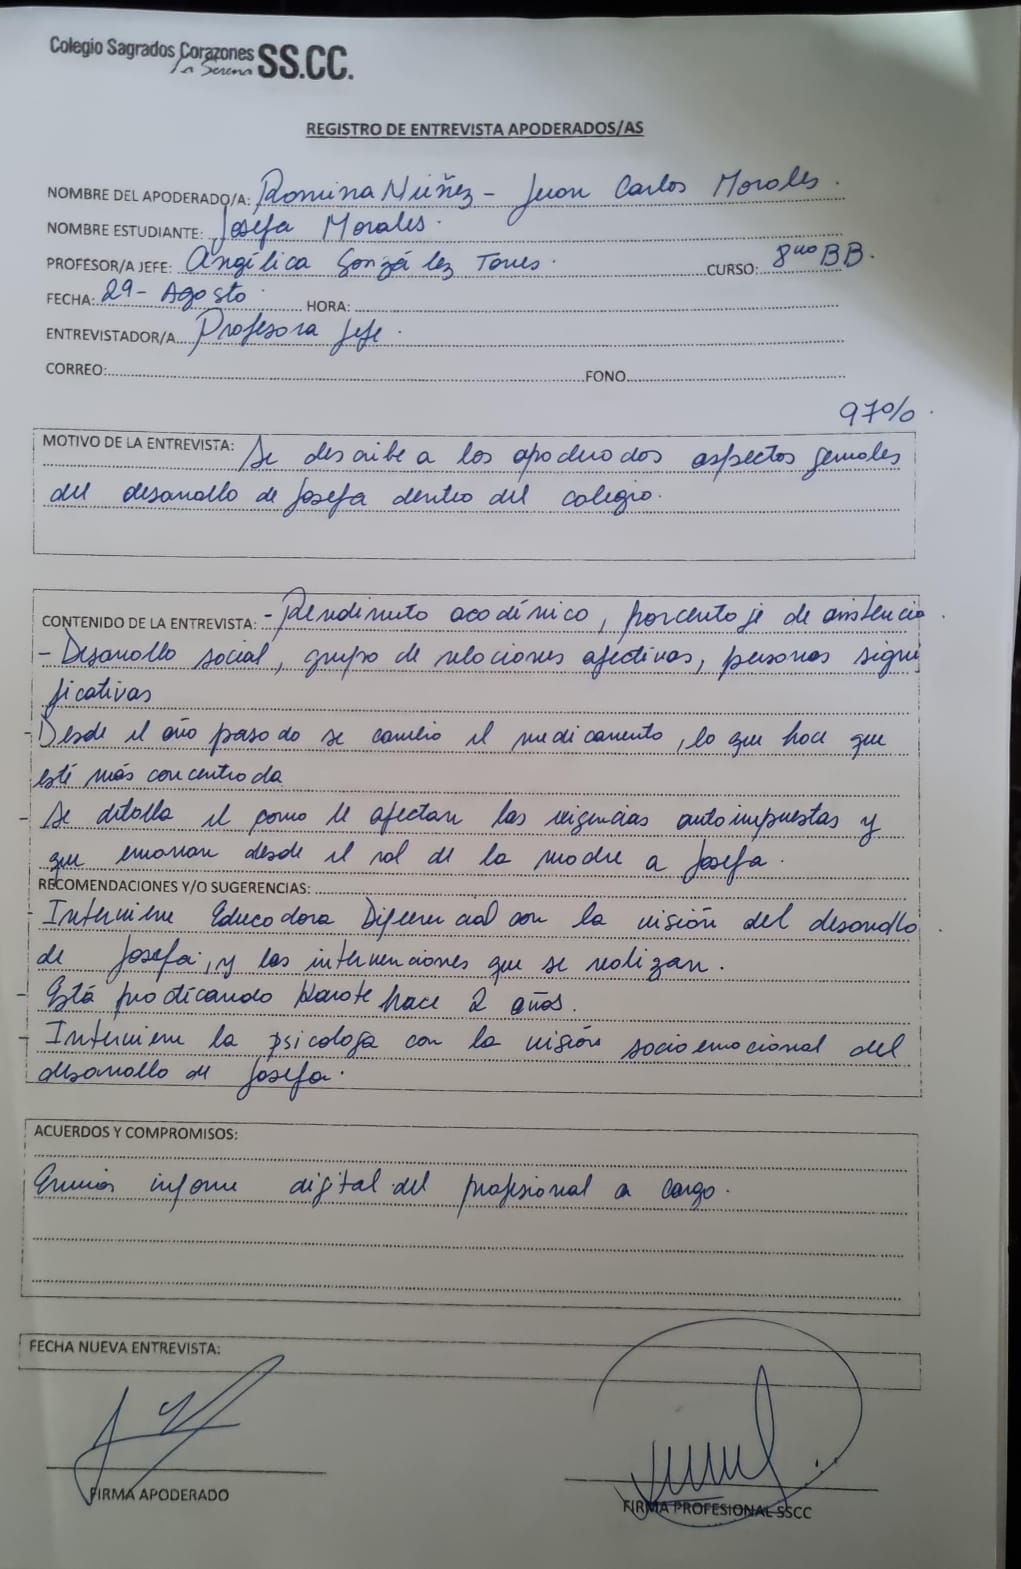 Colegio Sagrados Corazones SS.CC.
La Serena
REGISTRO DE ENTREVISTA APODERADOS/AS
NOMBRE DEL APODERADO/A: Romina Núñez - Juan Carlos Morales.
NOMBRE ESTUDIANTE: Josefa Morales.
PROFESOR/A JEFE: Angélica González Torres. CURSO: 8vo BB.
FECHA: 29 - Agosto. HORA:
ENTREVISTADOR/A Profesora Jefe.
CORREO: FONO
97%.
MOTIVO DE LA ENTREVISTA: Se describe a los apoderados aspectos generales
del desarrollo de Josefa dentro del colegio.
CONTENIDO DE LA ENTREVISTA: - Rendimiento académico, porcentaje de asistencia.
- Desarrollo social, grupo de relaciones afectivas, personas signi
ficativas
- Desde el año pasado se cambio el medicamento, lo que hace que
esté más concentrada
- Se detalla el como le afectan las exigencias autoimpuestas y
que emanan desde el rol de la madre a Josefa.
RECOMENDACIONES Y/O SUGERENCIAS:
- Interviene Educadora Diferencial con la visión del desarrollo.
de Josefa, y las intervenciones que se realizan.
- Está practicando Karate hace 2 años.
- Interviene la psicologa con la visión socioemocional del
desarrollo de Josefa.
ACUERDOS Y COMPROMISOS:
Enviar informe digital del profesional a cargo.
FECHA NUEVA ENTREVISTA:
FIRMA APODERADO
FIRMA PROFESIONAL SSCC